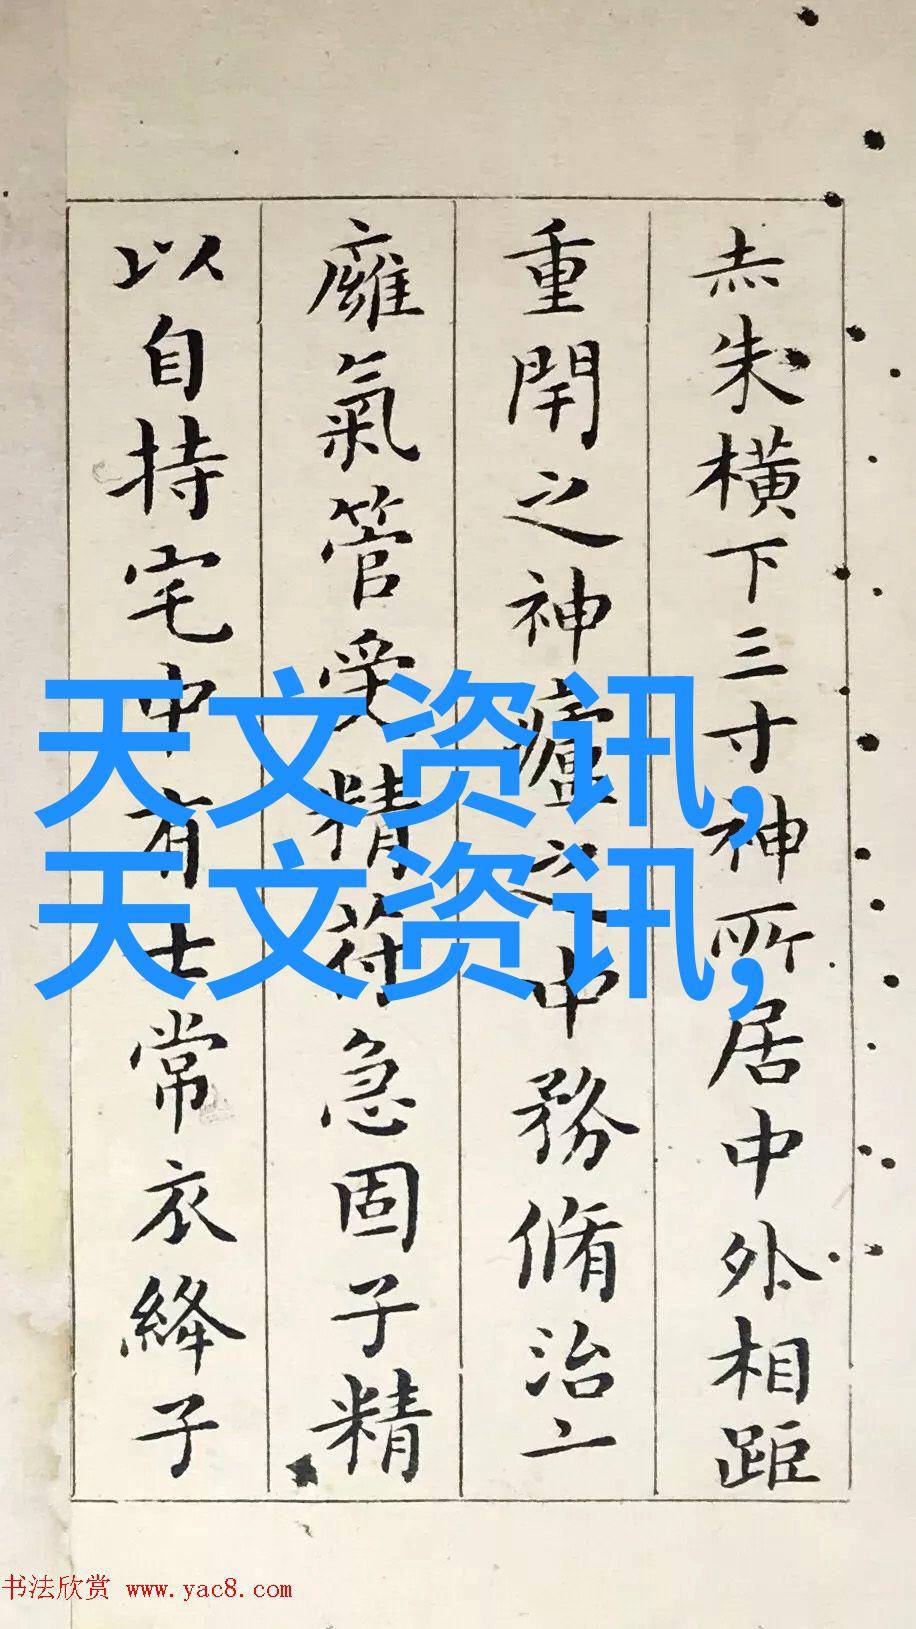 赤朱橫下三寸神所居中外相距
重閇之神廬之中務脩治
廱氣管受精苻急固子精
以自持宅中有士常衣絳子
天文资讯,
天文资讯,
书法欣赏 www.yac8.com